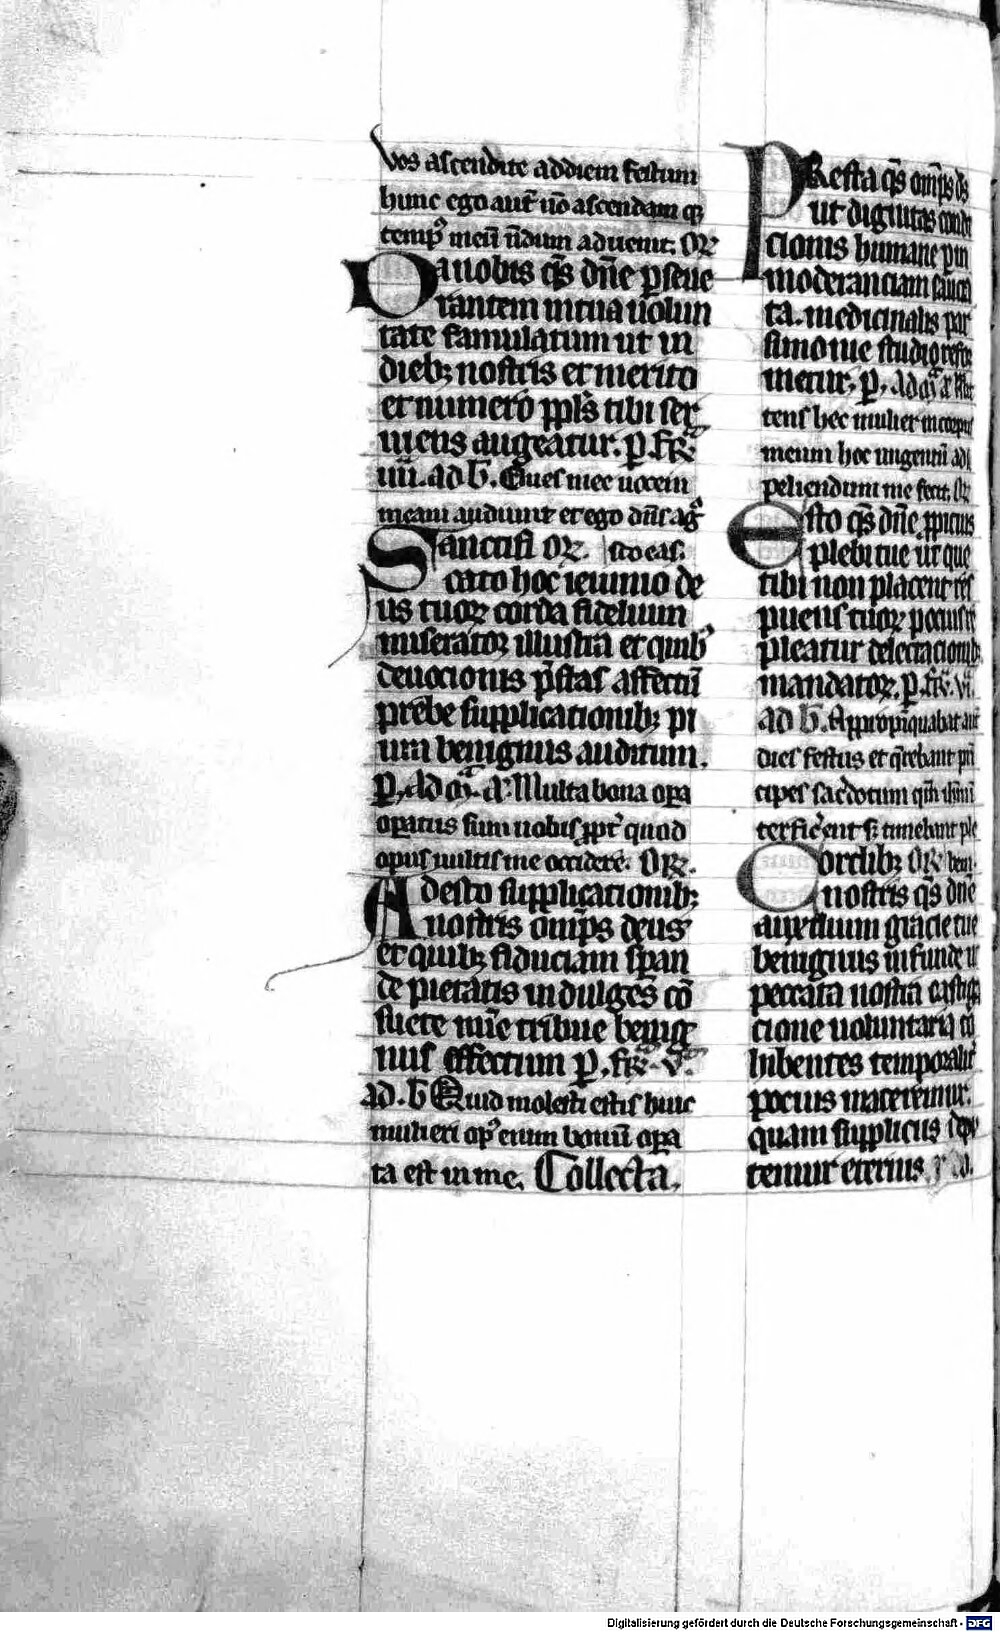 vos ascendite addiem festum
hunc ego aut̄ nō ascendam q̄
temp⁹ meū nōdum aduenit. Or̄
Da nobis q̄s dn̄e ꝑseue
rantem in tua uolun
tate famulatum ut in
dieb; nostris et merito
et numero ppl's tibi ser
uiens augeatur. ꝑ. fr̄
iiii. ad b̄. Oues mee uocem
meam audiunt et ego dn̄s ag⁹
Sanctifi Or̄. sco eas.
cato hoc ieiunio de
us tuoꝝ corda fidelium
miseratoꝝ illustra et quib⁹
deuocionis p̄stas affectū
prebe supplicationib; pi
um benignus auditum.
ꝑ. Ad m̄. a. Multa bona oꝑa
oꝑatus sum uobis ꝓpt̄ quod
opus uultis me occidere. Or̄.
Adesto supplicationib;
nostris omp̄s deus
et quib; fiduciam speran
de pietatis indulges cō
suete mīe tribue benig
nus effectum ꝑ. fr̄. v.
ad. b̄ Quid molesti estis huic
mulieri op⁹ enim bonū oꝑa
ta est in me. Collecta.
Presta q̄s omp̄s ds
ut dignitas condi
cionis humane ꝑ in
moderanciam saucia
ta. medicinalis par
simonie studio refor
metur. ꝑ. Ad m̄ a Mit
tens hec mulier in corpus
meum hoc ungentū ad se
peliendum me fecit. Or̄
Esto q̄s dn̄e ꝓpicius
plebi tue ut que
tibi non placent res
puens tuoꝝ pocius re
pleatur delectacionib;
mandatoꝝ. ꝑ. fr̄. vi.
ad b̄. Appropinquabat aut̄
dies festus et q̄rebant prin
cipes sac̄dotum qm̄ ihm̄ in
terficerent s; timebant ple
Cordib; Or̄ bem.
nostris q̄s dn̄e
auxilium gracie tue
benignus infunde ut
peccata nostra castiga
cione uoluntaria co
hibentes temporalit̄
pocius maceremur.
quam suppliciis depu
temur eternis. ꝑ d.
Digitalisierung gefördert durch die Deutsche Forschungsgemeinschaft - DFG